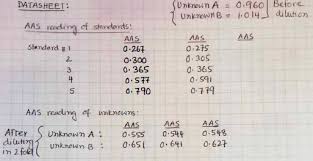 DATASHEET:
{ Unknown A = 0.960 } Before
{ Unknown B = 1.014 } dilution
AAS reading of standards:
AAS AAS AAS
Standard # 1 0.267 0.275
2 0.300 0.305
3 0.365 0.365
4 0.577 0.591
5 0.790 0.779
AAS reading of unknowns:
AAS AAS AAS
After { Unknown A : 0.555 0.544 0.548
dilution { Unknown B : 0.651 0.641 0.627
in 2 fold